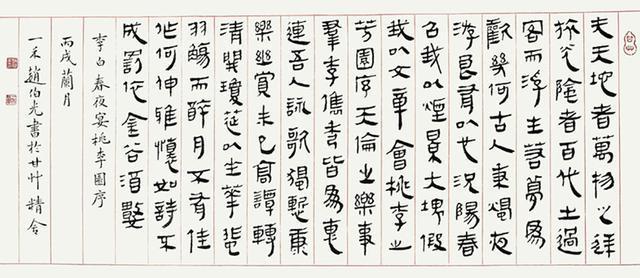 夫天地者萬物之逆
旅光陰者百代之過
客而浮生若夢為
歡幾何古人秉燭夜
游良有以也況陽春
召我以煙景大塊假
我以文章會桃李之
芳園序天倫之樂事
羣季儁秀皆為惠
連吾人詠歌獨慙康
樂幽賞未已高譚轉
清開瓊筵以坐華飛
羽觴而醉月不有佳
作何伸雅懷如詩不
成罰依金谷酒數
李白春夜宴桃李園序
丙戌蘭月
一禾趙伯光書於甘艸精舍